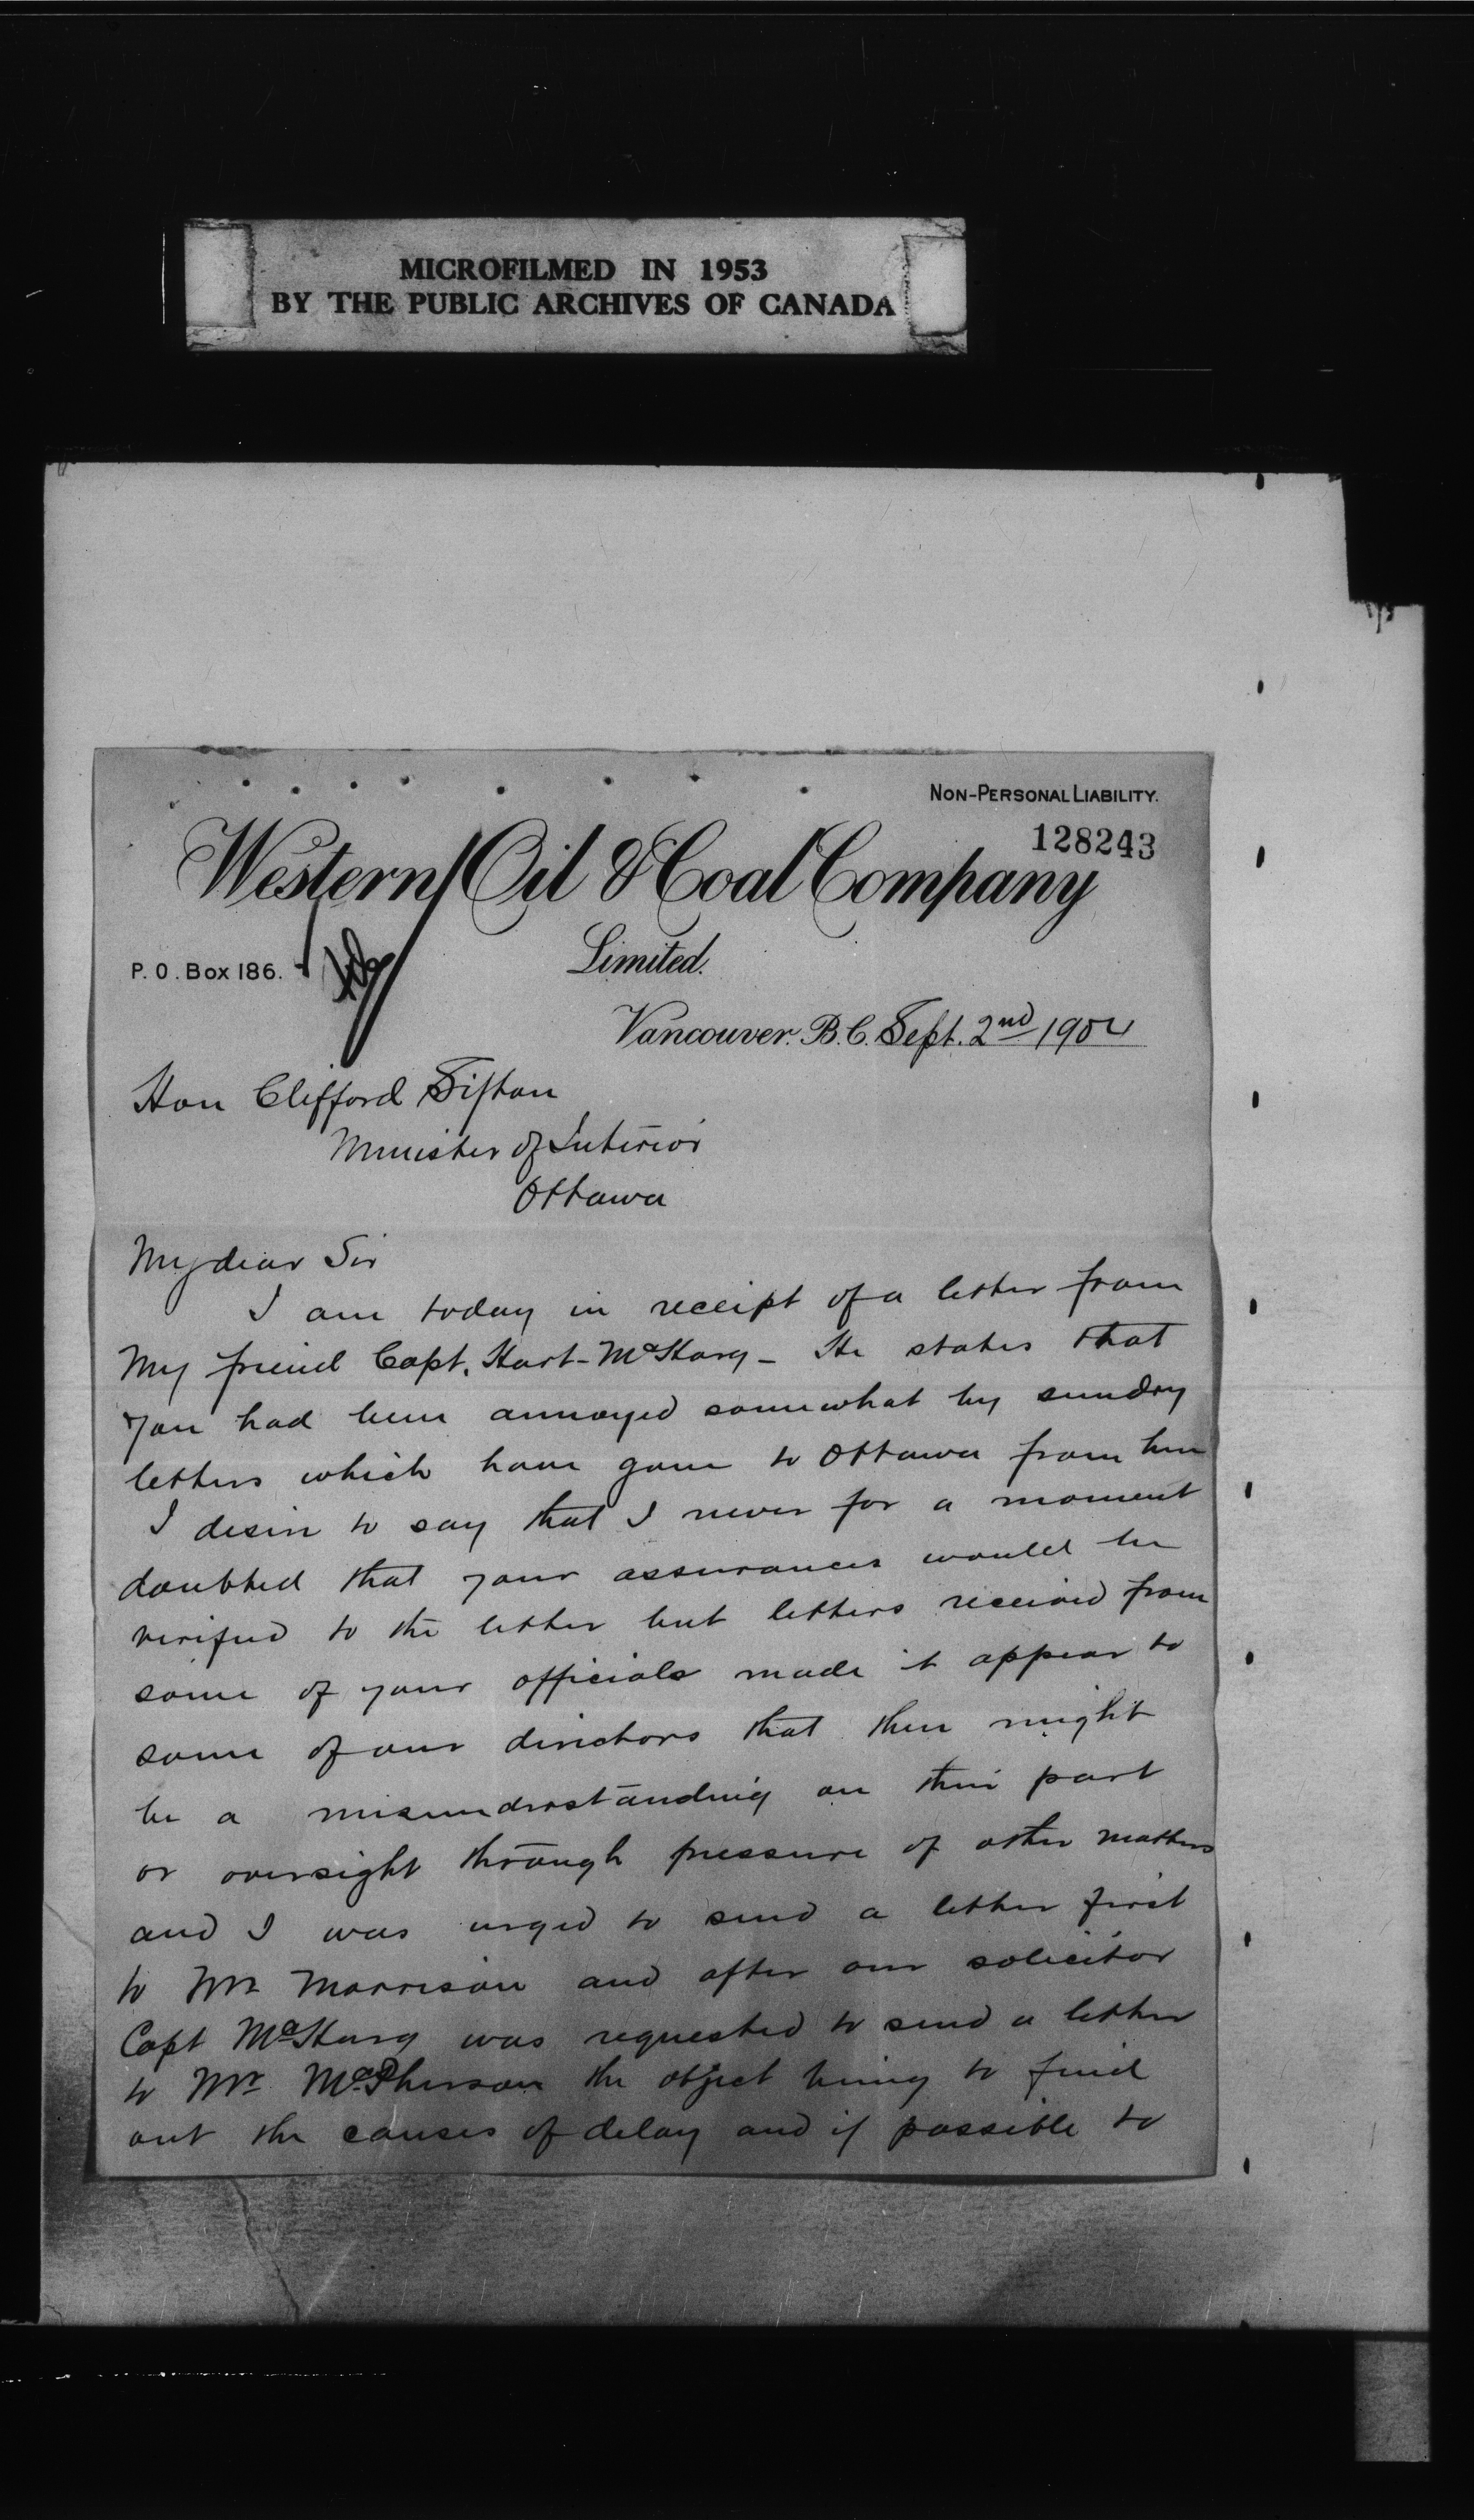 MICROFILMED IN 1953
BY THE PUBLIC ARCHIVES OF CANADA
NON-PERSONAL LIABILITY.
128243
Western Oil & Coal Company
Limited.
P. O. Box 186.
Vancouver. B.C. Sept. 2nd 1904
Hon Clifford Sifton
Minister of Interior
Ottawa
My dear Sir
I am today in receipt of a letter from
My friend Capt. Hart-McHarg - He states that
you had been annoyed somewhat by sundry
letters which have gone to Ottawa from here
I desire to say that I never for a moment
doubted that your assurances would be
verified to the letter but letters received from
some of your officials made it appear to
some of our directors that there might
be a misunderstanding on their part
or oversight through pressure of other matters
and I was urged to send a letter first
to Mr Morrison and after our solicitor
Capt McHarg was requested to send a letter
to Mr McPherson the object being to find
out the causes of delay and if possible to